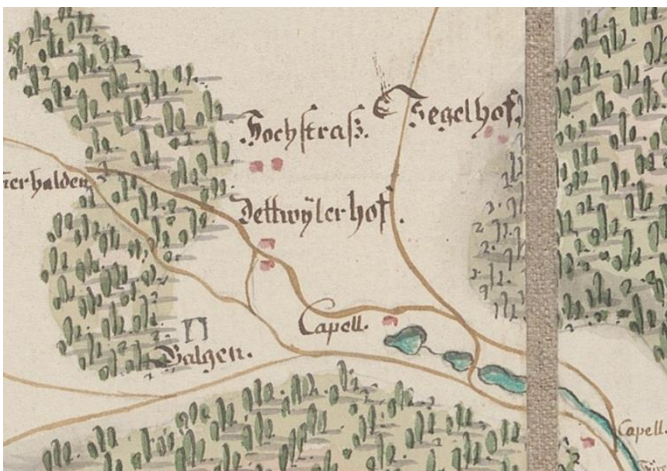 Hochstraß.
Segelhof.
Dettwÿlerhof.
Capell.
Galgen.
Capell.